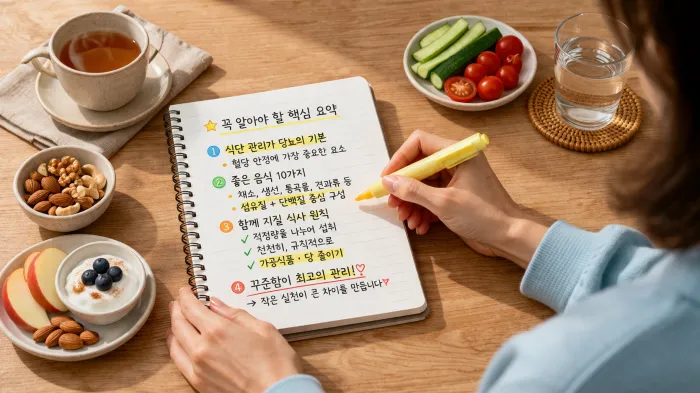 ⭐ 꼭 알아야 할 핵심 요약
1 식단 관리가 당뇨의 기본
• 혈당 안정에 가장 중요한 요소
2 좋은 음식 10가지
• 채소, 생선, 통곡물, 견과류 등
• 섬유질 + 단백질 중심 구성
3 함께 지질 식사 원칙
✓ 적정량을 나누어 섭취
✓ 천천히, 규칙적으로
✓ 가공식품·당 줄이기
4 꾸준함이 최고의 관리!♡
→ 작은 실천이 큰 차이를 만듭니다♥